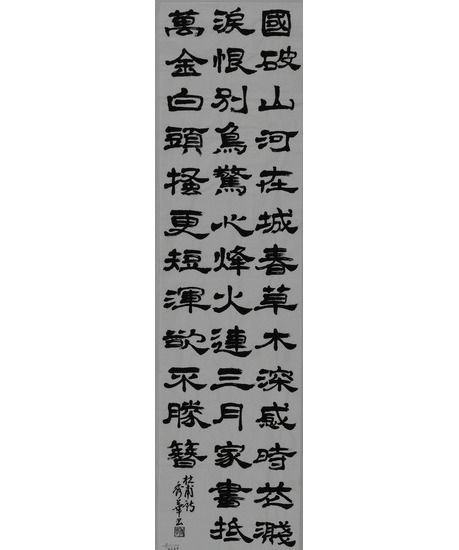 國破山河在城春草木深感時花濺
淚恨別鳥驚心烽火連三月家書抵
萬金白頭搔更短渾欲不勝簪
杜甫詩
秀華书